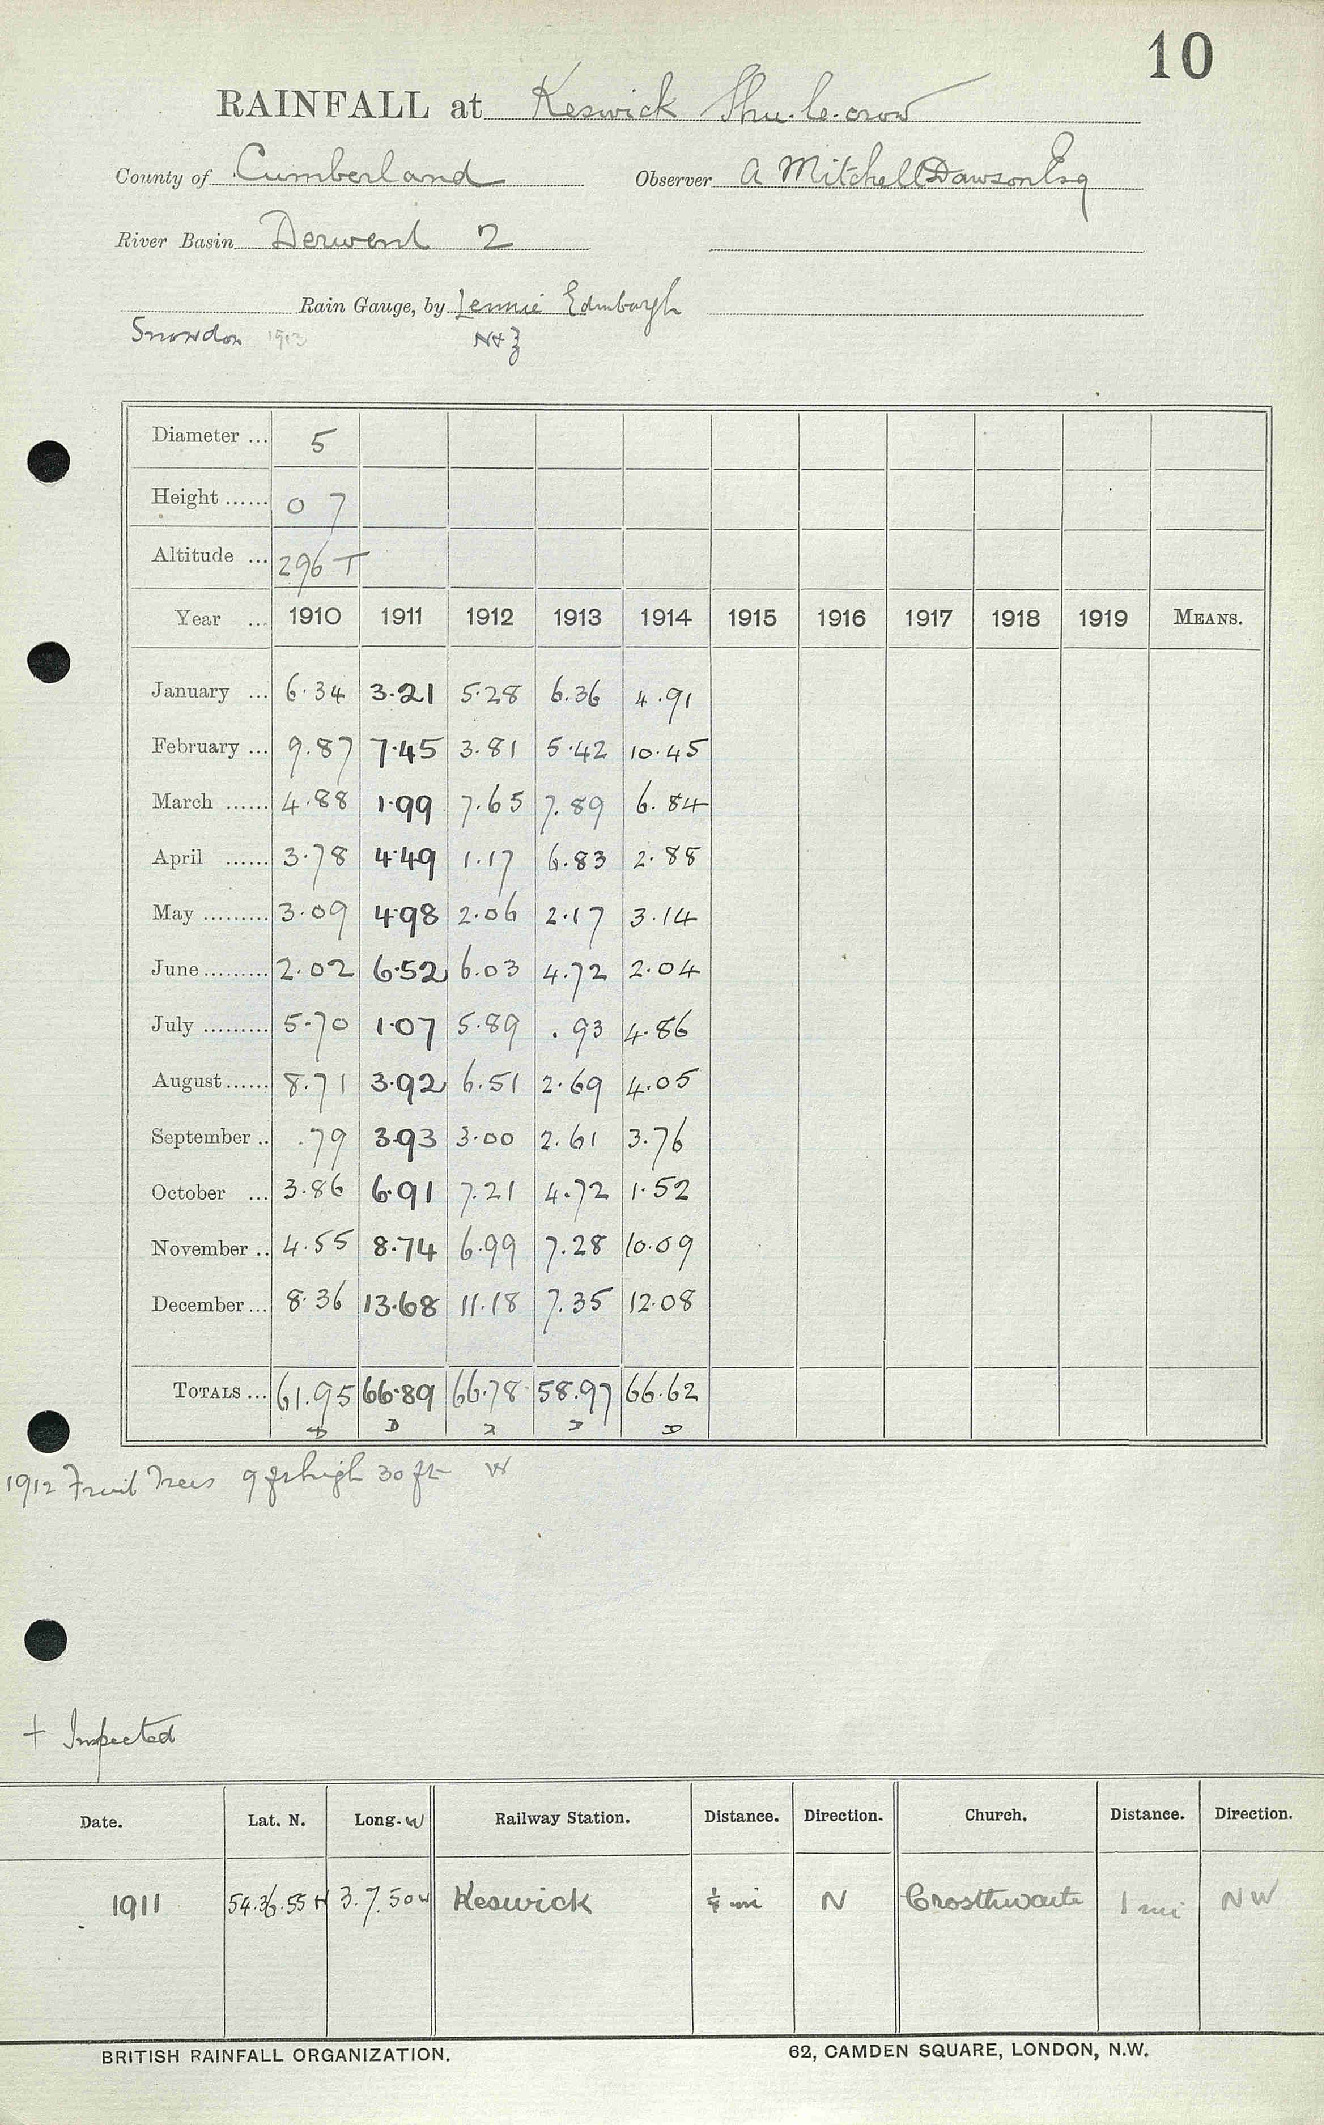 10
RAINFALL at Keswick Shu-le-crow
County of Cumberland Observer A Mitchell Dawson Esq
River Basin Derwent 2
Rain Gauge, by Lennie Edinburgh
Snowdon 1913
Diameter ... 5
Height ...... 0 7
Altitude ... 296 T
Year ... 1910 1911 1912 1913 1914 1915 1916 1917 1918 1919 MEANS.
January ... 6.34 3.21 5.28 6.36 4.91
February ... 9.87 7.45 3.81 5.42 10.45
March ...... 4.88 1.99 7.65 7.89 6.84
April ...... 3.78 4.49 1.17 6.83 2.88
May ......... 3.09 4.98 2.06 2.17 3.14
June ......... 2.02 6.52 6.03 4.72 2.04
July ......... 5.70 1.07 5.89 .93 4.86
August ...... 8.71 3.92 6.51 2.69 4.05
September .. .79 3.93 3.00 2.61 3.76
October ... 3.86 6.91 7.21 4.72 1.52
November .. 4.55 8.74 6.99 7.28 10.09
December ... 8.36 13.68 11.18 7.35 12.08
TOTALS ... 61.95 66.89 66.78 58.97 66.62
D D D D D
1912 Fruit Trees 9 ft high 30 ft W
+ Inspected
Date. Lat. N. Long. W Railway Station. Distance. Direction. Church. Distance. Direction.
1911 54.36.55 N 3.7.50 W Keswick ¼ mi N Crosthwaite 1 mi NW
BRITISH RAINFALL ORGANIZATION. 62, CAMDEN SQUARE, LONDON, N.W.